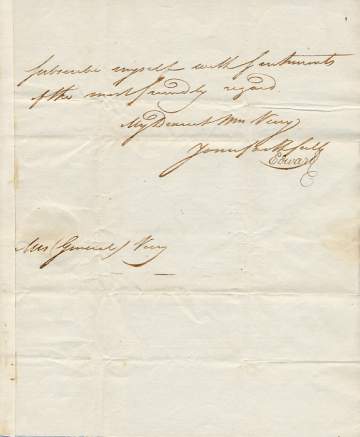 Subscribe myself with Sentiments
of the most friendly regard
My Dearest Mrs Vesey
Yours faithfully
Edward
Mrs (General) Vesey